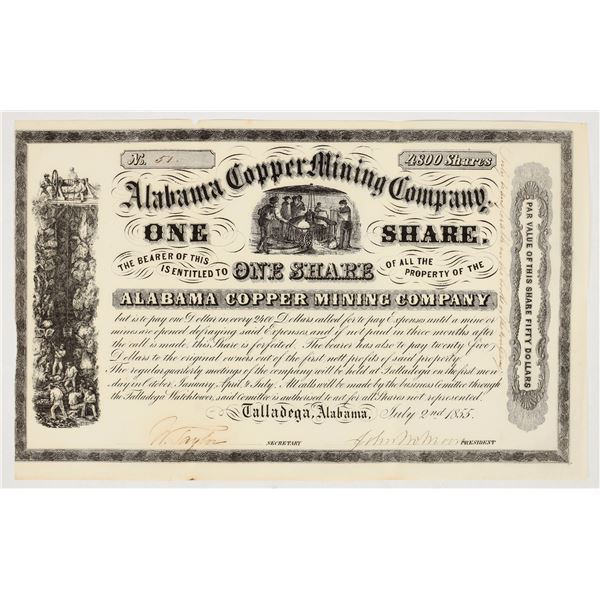 No. 51.
4800 Shares
Alabama Copper Mining Company.
ONE SHARE.
THE BEARER OF THIS IS ENTITLED TO ONE SHARE OF ALL THE PROPERTY OF THE
ALABAMA COPPER MINING COMPANY
but is to pay one Dollar in every 2400 Dollars called for to pay Expenses until a mine or
mines are opened defraying said Expenses, and if not paid in three months after
the call is made this Share is forfeited. The bearer has also to pay twenty five
Dollars to the original owners out of the first nett profits of said property.
The regular quarterly meetings of the company will be held at Talladega on the first mon
day in October, January, April & July. All calls will be made by the business Committee through
the Talladega Watchtower, said Committee is authorised to act for all Shares not represented.
Talladega, Alabama, July 2nd 1855.
W. Taylor SECRETARY
John PRESIDENT
PAR VALUE OF THIS SHARE FIFTY DOLLARS